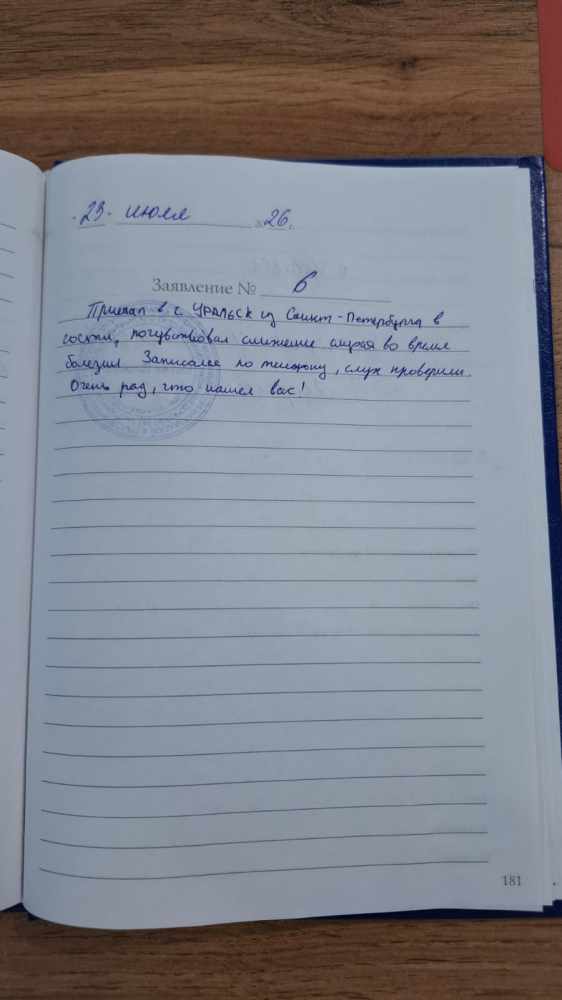 23. июля 26.
Заявление № 6
Приехал в г. Уральск из Санкт-Петербурга в
гости, почувствовал снижение слуха во время
болезни. Записался по телефону, слух проверили.
Очень рад, что нашел вас!
181